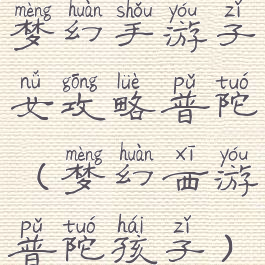 mèng huàn shǒu yóu zǐ
梦幻手游子
nǚ gōng lüè pǔ tuó
女攻略普陀
mèng huàn xī yóu
（梦幻西游
pǔ tuó hái zǐ
普陀孩子）